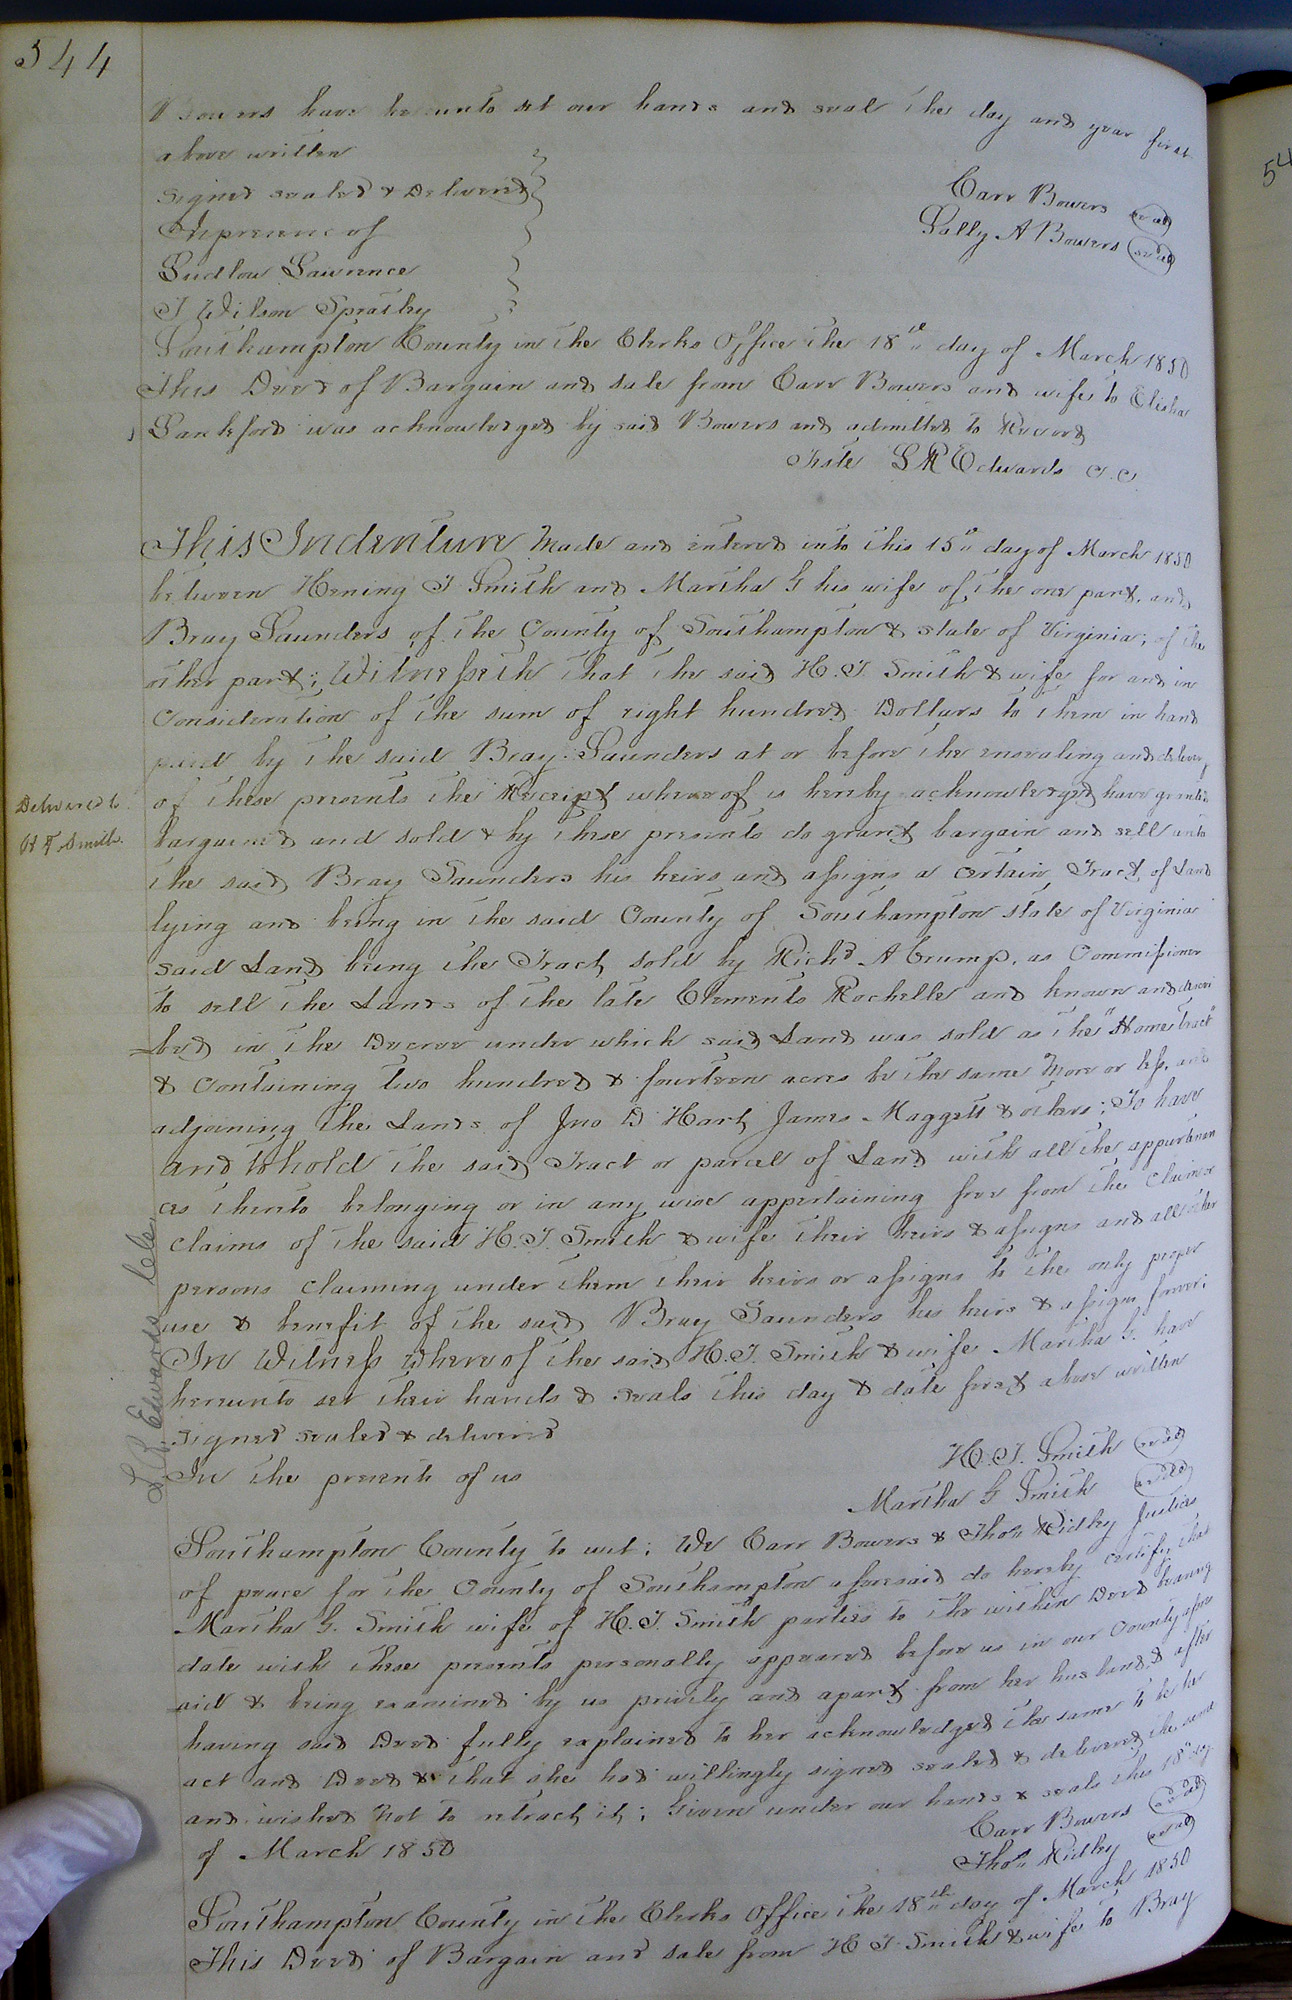 544
Bowers have hereunto set our hands and seal the day and year first
above written
Signed sealed & Delivered
In presence of
Ludlow Lawrence
J Wilson Spratley
Carr Bowers seal
Sally A Bowers seal
Southampton County in the Clerks Office the 18th day of March 1850
This Deed of Bargain and sale from Carr Bowers and wife to Elisha
Lankford was acknowledged by said Bowers and admitted to Record
Teste L R Edwards C.C.
This Indenture Made and entered into this 15th day of March 1850
between Hening T Smith and Martha G his wife of the one part, and
Bray Saunders of the County of Southampton & state of Virginia; of the
other part; Witnesseth that the said H. T. Smith & wife for and in
Consideration of the sum of eight hundred Dollars to them in hand
paid by the said Bray Saunders at or before the ensealing and delivery
of these presents the Receipt whereof is hereby acknowledged have granted
bargained and sold & by these presents do grant bargain and sell unto
the said Bray Saunders his heirs and assigns a certain Tract of Land
lying and being in the said County of Southampton state of Virginia
said Land being the Tract sold by Richd A Crump, as Commissioner
to sell the Lands of the late Clements Rochelle and known and descri
bed in the Decree under which said Land was sold as the "Home tract"
& Containing two hundred & fourteen acres be the same More or less, and
adjoining the Lands of Jno D Hart, James Maggett & others; To have
and to hold the said Tract or parcel of Land with all the appurtenan
ces thereto belonging or in any wise appertaining free from the Claim or
claims of the said H. T. Smith & wife their heirs & assigns and all other
persons claiming under them their heirs or assigns to the only proper
use & benefit of the said Bray Saunders his heirs & assigns forever;
In Witness Whereof the said H. T. Smith & wife Martha G. have
hereunto set their hands & seals this day & date first above written
Signed sealed & delivered
In the presents of us
H. T. Smith seal
Martha G Smith seal
Delivered to
H T Smith
L. R. Edwards Cle
Southampton County to wit; We Carr Bowers & Thos Ridley Justices
of peace for the County of Southampton aforesaid do hereby certify that
Martha G. Smith wife of H. T. Smith parties to the within Deed bearing
date with these presents personally appeared before us in our County afore
said & being examined by us privily and apart from her husband & after
having said Deed fully explained to her acknowledged the same to be her
act and Deed & that she had willingly signed sealed & delivered the same
and wished not to retract it; Given under our hands & seals this 18th day
of March 1850
Carr Bowers seal
Thos Ridley seal
Southampton County in the Clerks Office the 18th day of March 1850
This Deed of Bargain and sale from H T Smith & wife to Bray
54